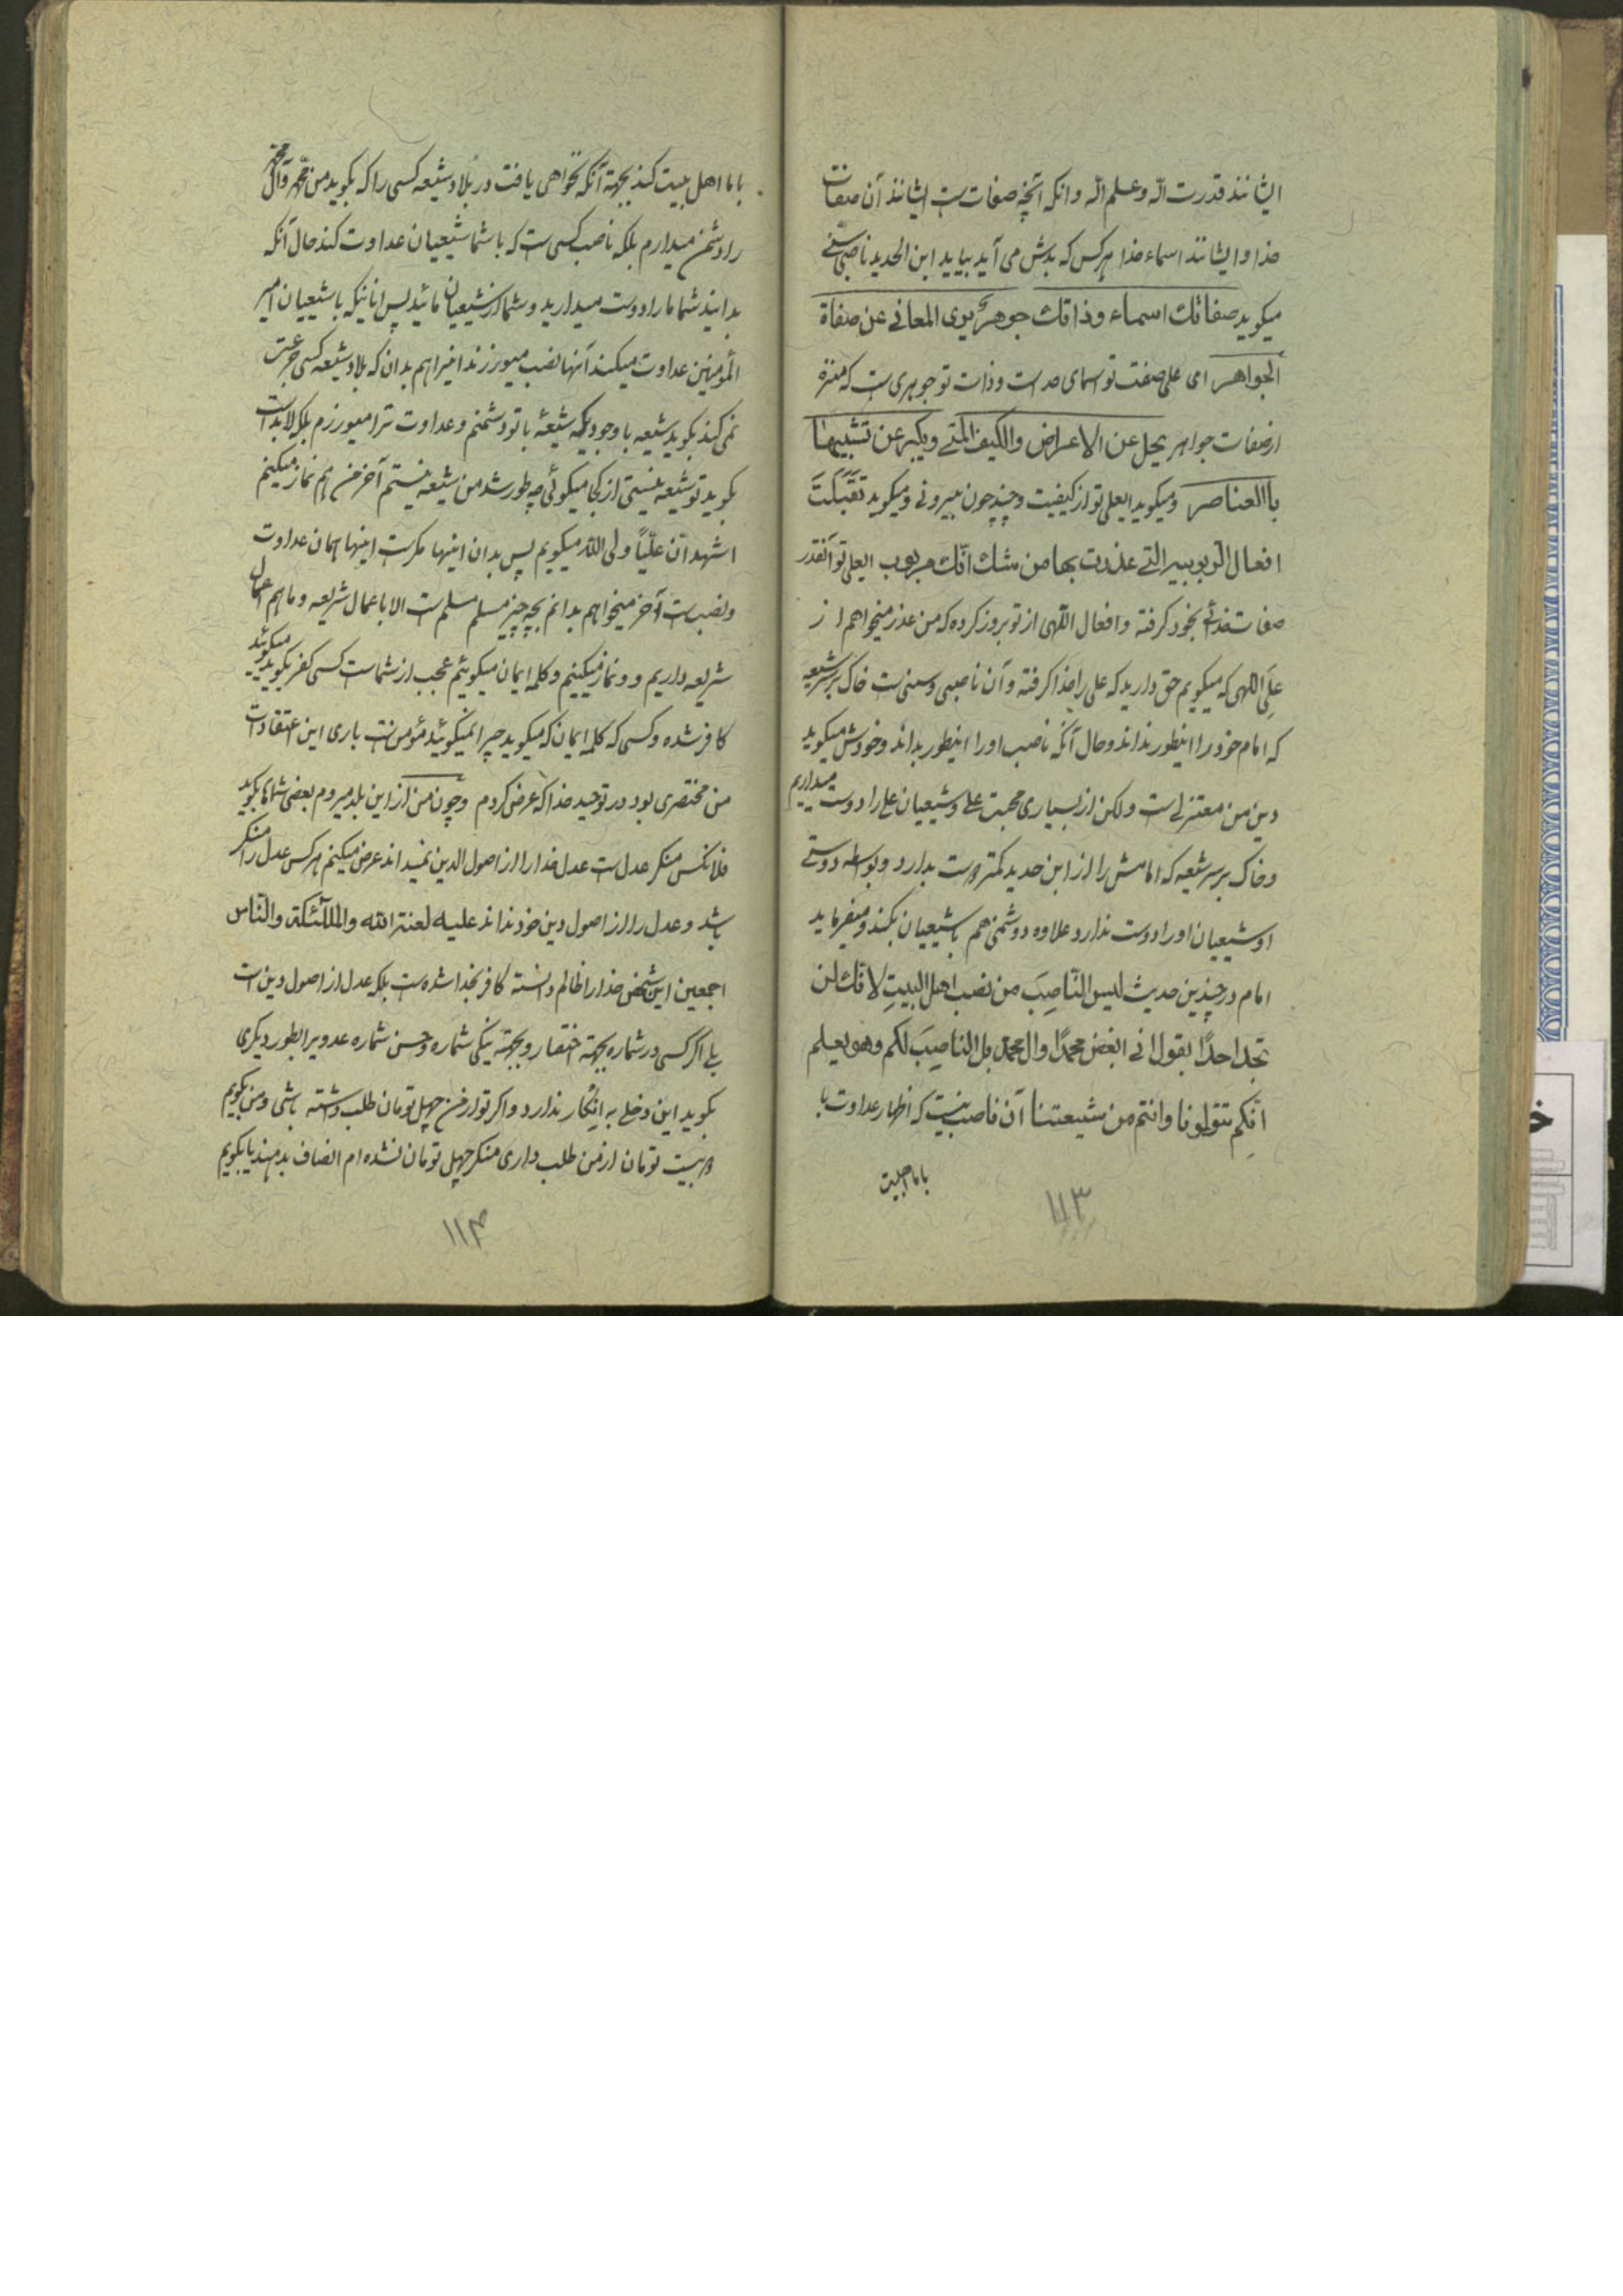 ایشانند قدرت اله و علم اله و انکه آنچه صفات ست ایشانند آن صفات
خدا و ایشانند اسماء خدا هر کس که بدش می آید بیاید ابن الحدید ناصبی سنی
میکوید صفاتك اسماء وذاتك جوهر بری المعانی عن صفاة
الجواهر ای علی صفت تو اسمای خداست و ذات تو جوهری ست که منزه
از صفات جواهر یجل عن الاعراض والکیف والمتی ویکبر عن تشبیهها
باالعناصر و میکوید ایعلی تو از کیفیت و چند چون بیرونی و میکوید تقبلت
افعال الربوبیه التی عذرت بها من شك انّك مربوب ایعلی تو آنقدر
صفات خدائی بخود کرفته و افعال اللهی از تو بروز کرده که من عذر میخواهم از
علی اللهی که میکویم حق دارید که علی را خدا کرفته و آن ناصبی و سنی ست خاک بر سر شیعه
که امام خود را اینطور نداند و حال آنکه ناصب او را اینطور بداند و خودش میکوید
دین من معتزلی است ولکن از بسیاری محبت علی و شیعیان علی را دوست میداریم
و خاک بر سر شیعه که امامش را از ابن حدید کمتر دوست بدارد و بواسطه دوستی
او شیعیان او را دوست ندارد علاوه دوشمنی هم با شیعیان بکند و میفرماید
امام در چندین حدیث لیس النّاصِبَ من نصب اهل البیتِ لانّك لن
تجد احدًا یقول انی ابغض محمدًا وال محمد بل الناصِبَ لکم وهو یعلم
انّکم تتولونا وانتم من شیعتنا آن ناصب نیست که اظهار عداوت با
با ما اهلبیت
۱۱۳
با ما اهل بیت کند بجهة آنکه نخواهی یافت در بلاد شیعه کسی را که بکوید من محمد و آل محمد
را دشمن میدارم بلکه ناصب کسی ست که با شما شیعیان عداوت کند حال آنکه
بدانید شما ما را دوست میدارید و شما از شیعیان مائید پس انانیکه با شیعیان امیر
المؤمنین عداوت میکنند آنها نصب میورزند اینرا هم بدان که بلاد شیعه کسی جرئت
نمی کند بکوید شیعه با وجودیکه شیعهٔ با تو دشمنم و عداوت ترا میورزم بلکه لابد است
بکوید تو شیعه نیستی از کجا میکوئی چه طور شد من شیعه نیستم آخر من هم نماز میکنم
اشهد انّ علیّاً ولی الله میکویم پس بدان اینها مکر ست اینها همان عداوت
و نصب ست آخر میخواهم بدانم بچه چیز مسلم مسلم ست الا باعمال شریعه و ما هم اعمال
شریعه داریم و نماز میکنیم و کلمه ایمان میکوئیم عجب از شماست کسی کفر بکوید میکوئید
کافر شده و کسی که کلمه ایمان که میکوید چرا نمیکوئید مؤمن ست باری این اعتقادات
من مختصری بود در توحید خدا که عرض کردم و چون من از این بلد میروم بعضی شماها بکوید
فلانکس منکر عدل ست عدل خدا را از اصول الدین نمیداند عرض میکنم هر کس عدل را منکر
باشد و عدل را از اصول دین خود نداند علیه لعنة الله والملآئکة والنّاس
اجمعین این شخص خدا را ظالم دانسته کافر بخدا شده ست بلکه عدل از اصول دین است
بلی اکر کسی در شماره بجهة اختصار و بجهة نیکی شماره و حسن شماره عدد را بطور دیکری
بکوید این دخلی به اِنکار ندارد و اکر تو از من چهل تومان طلب داشته باشی و من بکویم
دو بیست تومان از من طلب داری منکر چهل تومان نشده ام انصاف بدهند یا بکویم
۱۱۴